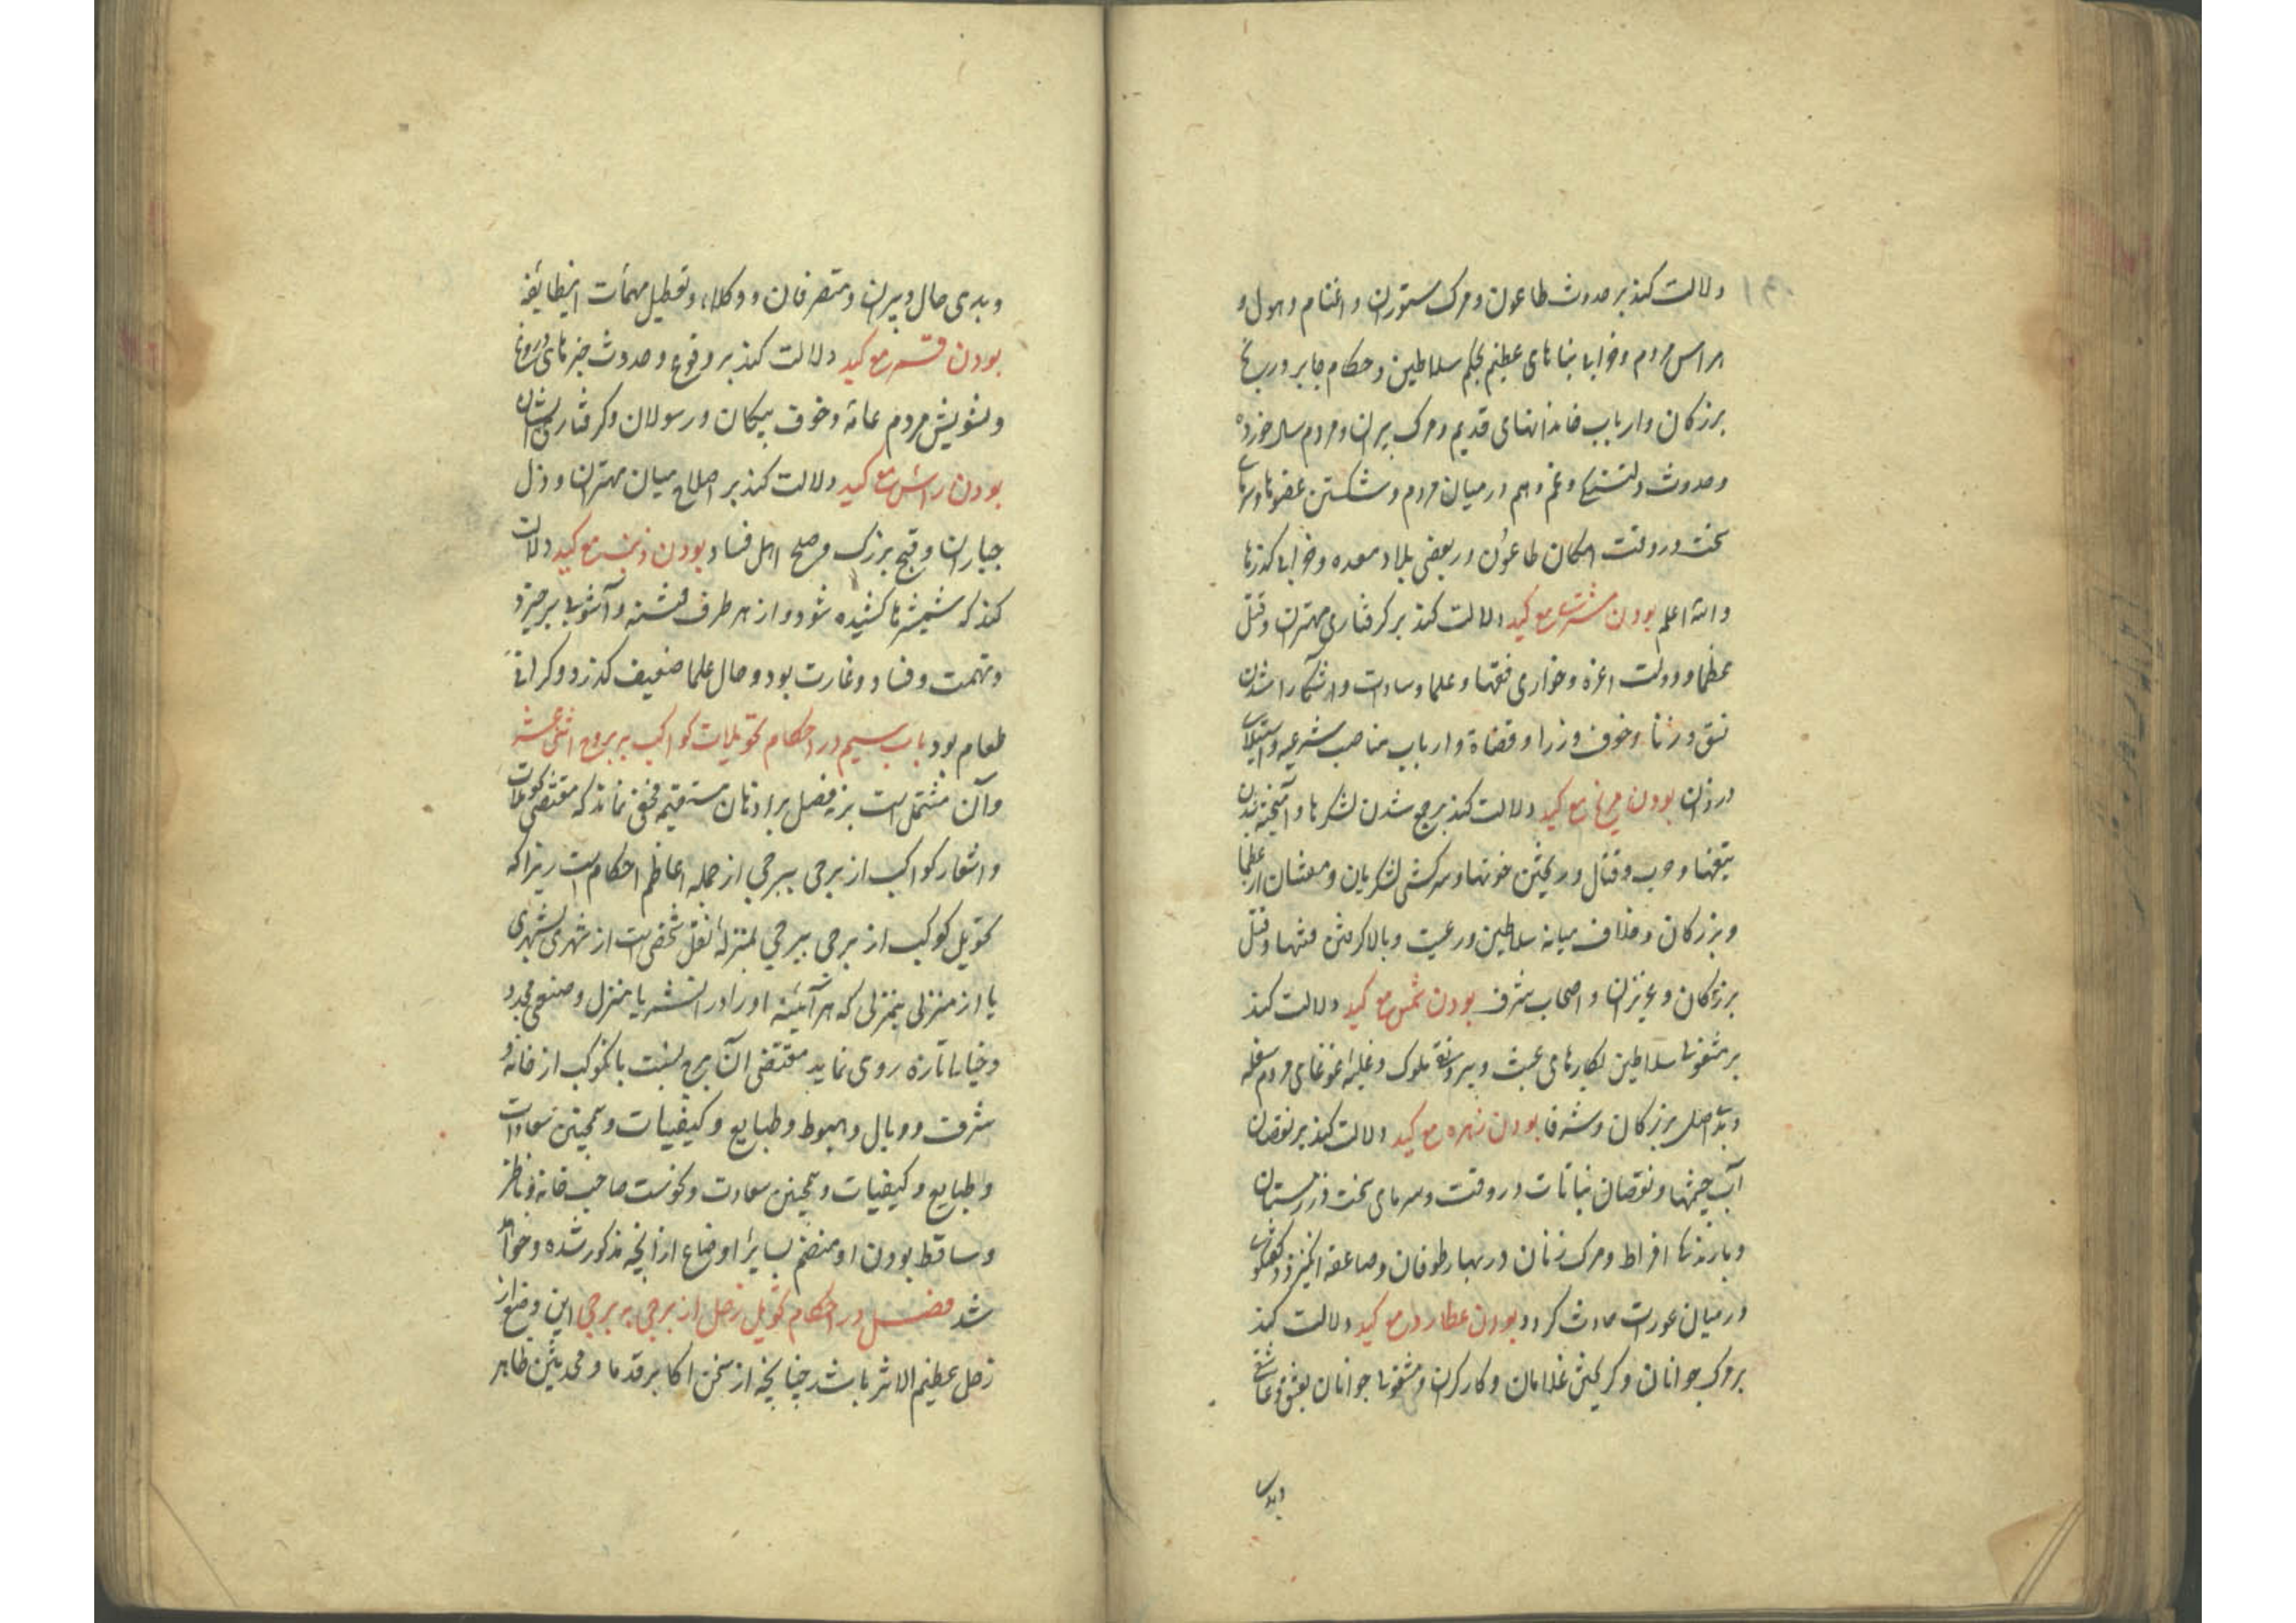 دلالت کند بر حدوث طاعون و مرک ستوران و اغنام و هول و
هراس مردم و خرابی بناهای عظیم بحکم سلاطین و حکام جابر و رنج
بزرکان و ارباب خاندانهای قدیم و مرک پیران و مردم سال خورده
و حدوث دلتنگی و غم و هم در میان مردم و شکستن عضوها و سرمای
سخت در وقت امکان طاعون در بعضی بلاد معده و خرابی کذرها
والله اعلم بودن مشتری مع کید دلالت کند بر کرفتاری مهتران و قتل
عظما و دولت اعزه و خواری فقها و علما و سادات و آشکارا شدن
فسق و زنا و خوف وزرا و قضاة و ارباب مناصب شرعیه و استیلای
دزدان بودن مریخ مع کید دلالت کند بر جمع شدن لشکرها و آمیخته شدن
تیغها و حرب و قتال و ریختن خونها و سرکشی لشکریان و مفسدان از عظما
و بزرکان و خلاف میانه سلاطین و رعیت و بالا کرفتن فتنها و قتل
بزرکان و عزیزان و اصحاب شرف بودن شمس مع کید دلالت کند
بر مشغولی سلاطین بکارهای عبث و بیرونقی ملوک و غلبه غوغای مردم سفله
و بد اصل بر بزرکان و شرفا بودن زهره مع کید دلالت کند بر نقصان
آب چشمها و نقصان نباتات در وقت و سرمای سخت در زمستان
و بارندکی افراط و مرک زنان در بهار طوفان و صاعقه انکیزد و کفتکوی
در میان عورات حادث کردد بودن عطارد مع کید دلالت کند
بر مرک جوانان و کریختن غلامان و کارکران و مشغولی جوانان بعشق و عاشقی
و بدی
و بدی حال دبیران و متصرفان و وکلاء و تعطیل مهمات اینطایفه
بودن قمر مع کید دلالت کند بر وقوع و حدوث خبرهای دروغ
و تشویش مردم عامه و خوف پیکان و رسولان و کرفتاری ایشان
بودن راس مع کید دلالت کند بر اصلاح میان مهتران و ذل
جباران و قبح بزرک و صلح اهل فساد بودن ذنب مع کید دلالت
کند که شمشیرها کشیده شود و از هر طرف فتنه و آشوب برخیزد
و تهمت و فساد و غارت بود و حال علما ضعیف کذرد و کرانی
طعام بود باب سیم در احکام تحویلات کواکب بر بروج اثنی عشر
و آن مشتمل است بر نه فصل بر اذهان مستقیمه مخفی نماند که مقتضی تحویلات
و انتقار کواکب از برجی ببرجی از جمله اعاظم احکام است زیرا که
تحویل کوکب از برجی ببرجی بمنزله نقل شخصی است از شهری بشهری
یا از منزلی بمنزلی که هر آینه او را در آن شهر یا منزل وضعی مجدد
و خیالات تازه روی نماید مقتضی آن برج بنسبت با کوکب از خانه و
شرف و وبال و هبوط و طبایع و کیفیات و همچنین سعادات
و طبایع و کیفیات و همچنین سعادت و نحوست صاحب خانه و ناظر
و ساقط بودن او منضم بسایر اوضاع از آنچه مذکور شده و خواهد
شد فصل در احکام تحویل زحل از برجی به برجی این وضع از
زحل عظیم الاثر باشد چنانچه از سخن اکابر قدما و محدثین ظاهر